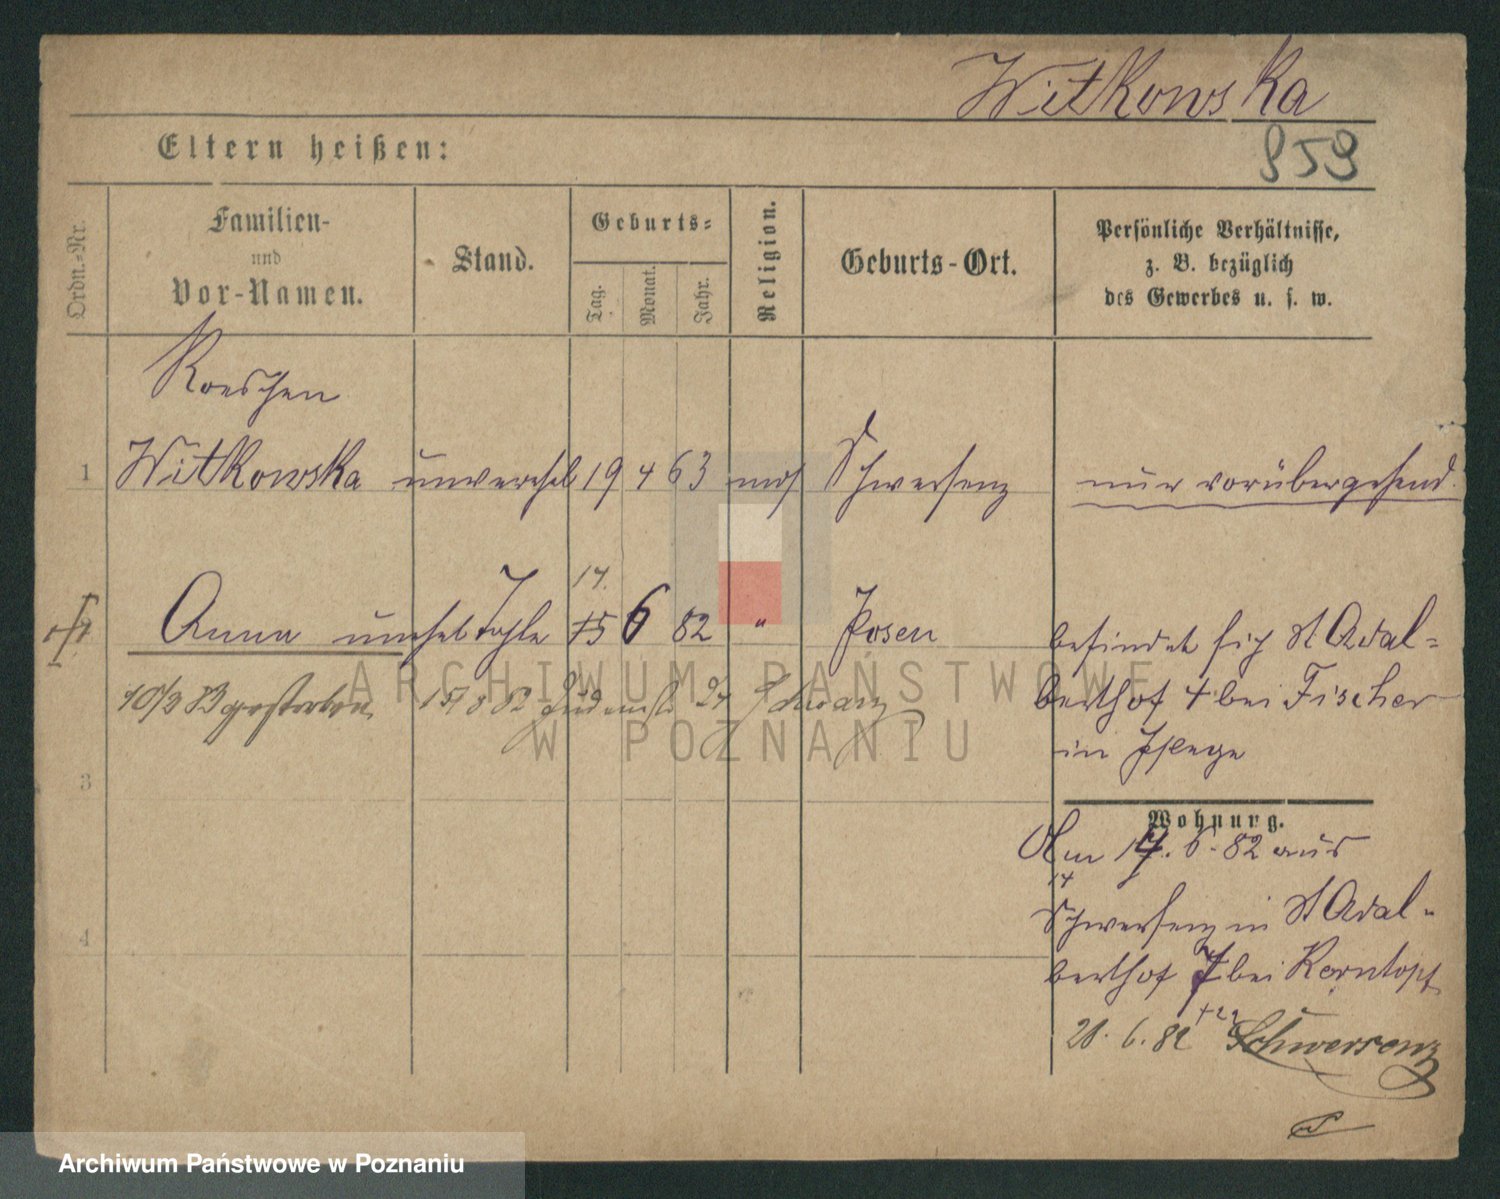 Witkowska
959
Eltern heißen:
Ordn.-Nr.
Familien-
und
Vor-Namen.
Stand.
Geburts-
Tag.
Monat.
Jahr.
Religion.
Geburts-Ort.
Persönliche Verhältnisse,
z. B. bezüglich
des Gewerbes u. s. w.
Roeschen
1 Witkowska unverehel 19 4 63 mos Schwersenz nur vorübergehend.
17.
Anna unehel 15 6 82 " Posen befindet sich St Adal-
berthof 4 bei Fischer
in Pflege
10/2 83 gestorben 82
3
Wohnung.
Am 17. 6. 82 aus
14
Schwersenz in St Adal-
4
berthof 7 bei Korntopf
21. 6. 82 Schwersenz
ARCHIWUM PAŃSTWOWE
W POZNANIU
Archiwum Państwowe w Poznaniu